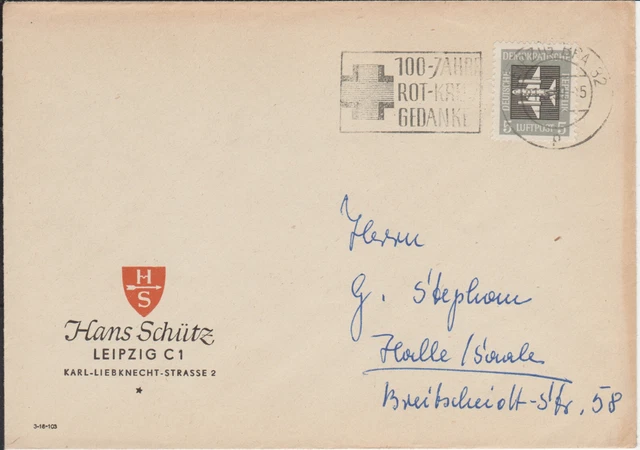 100-JAHRE
ROT-KREUZ
GEDANKE
DEMOKRATISCHE
REPUBLIK
5 LUFTPOST 5
H
S
Hans Schütz
LEIPZIG C 1
KARL-LIEBKNECHT-STRASSE 2
*
3-16-103
Herrn
G. Stephan
Halle/Saale
Breitscheidt-Str. 58